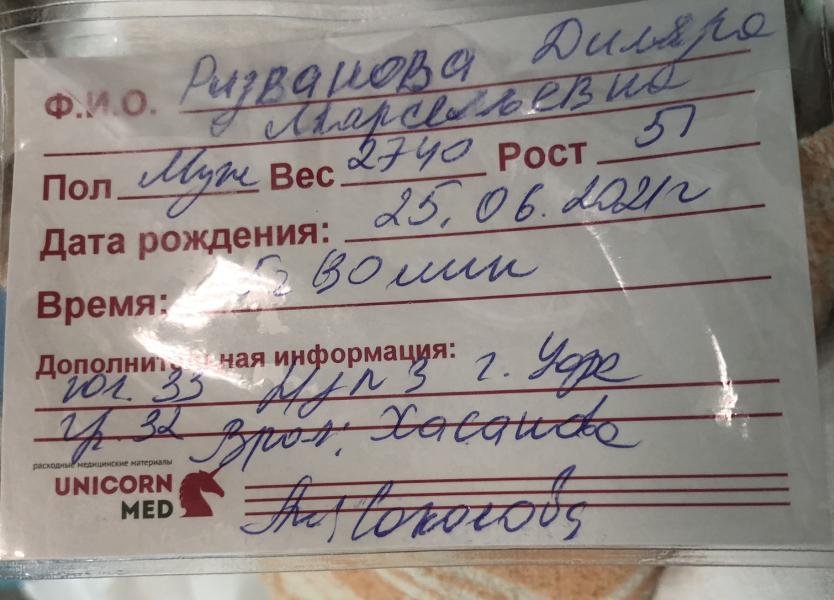 Ф.И.О. Ризванова Диляра
Марсельевна
Пол Муж Вес 2740 Рост 51
Дата рождения: 25.06.2021г
Время: 30 мин
Дополнительная информация:
гол. 33 г. Уфа
гр. 32 Врач: Хасанова
расходные медицинские материалы
UNICORN
MED
Соколова